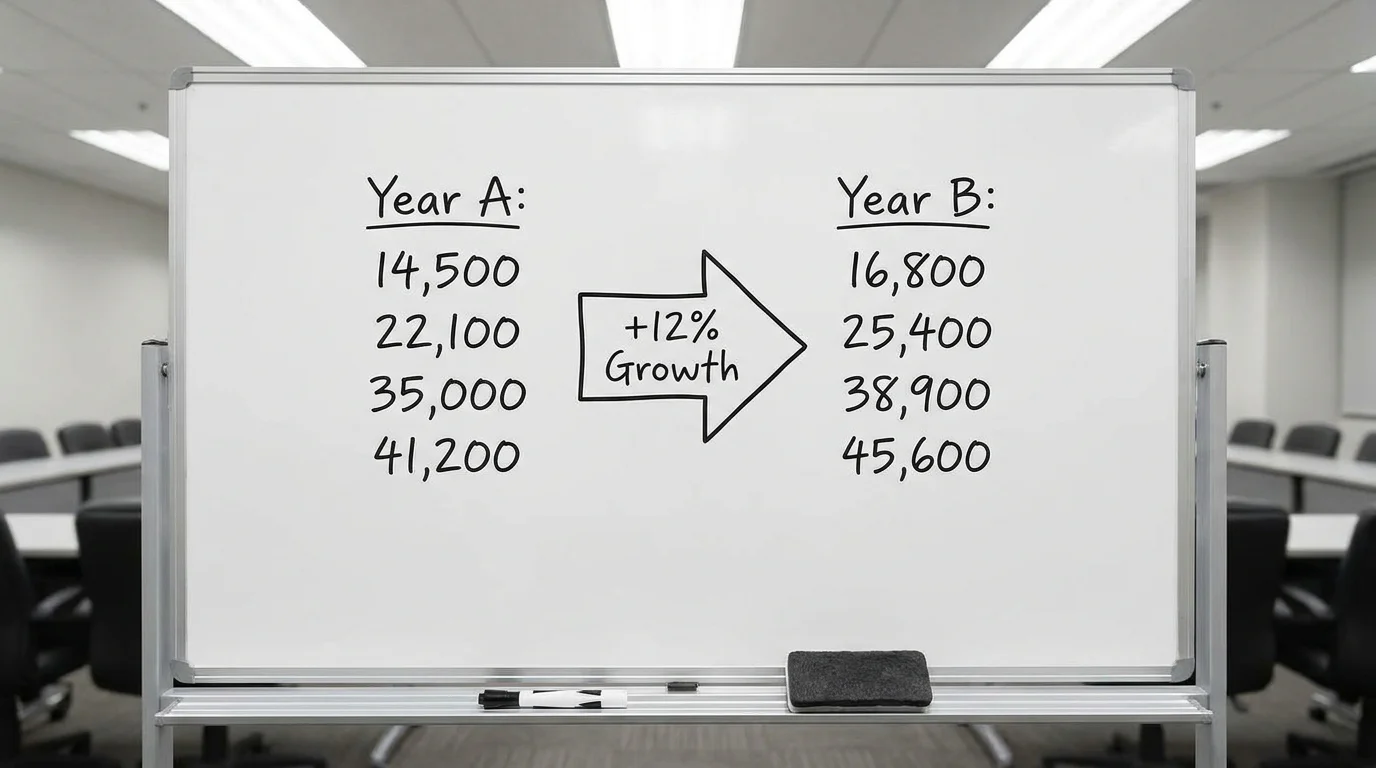 Year A:
14,500
22,100
35,000
41,200
+12%
Growth
Year B:
16,800
25,400
38,900
45,600